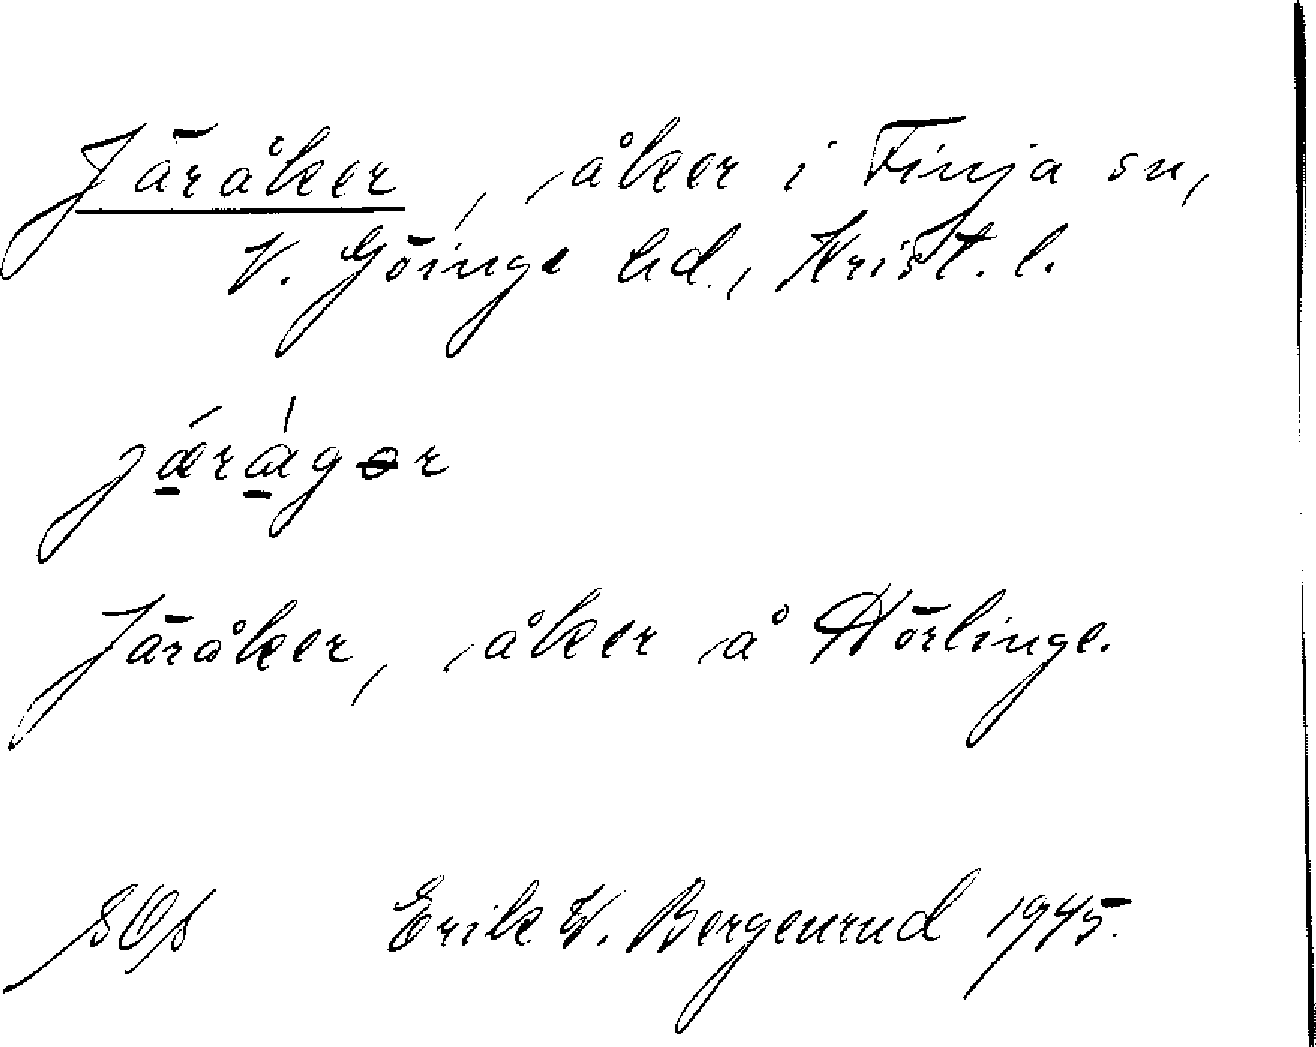 Järåker, åker i Finja sn,
V. Göinge hd., Krist. l.
jǽ̠rɑ̠́gər
Järåker, åker å Hörlinge.
SOS Erik W. Bergenrud 1945.